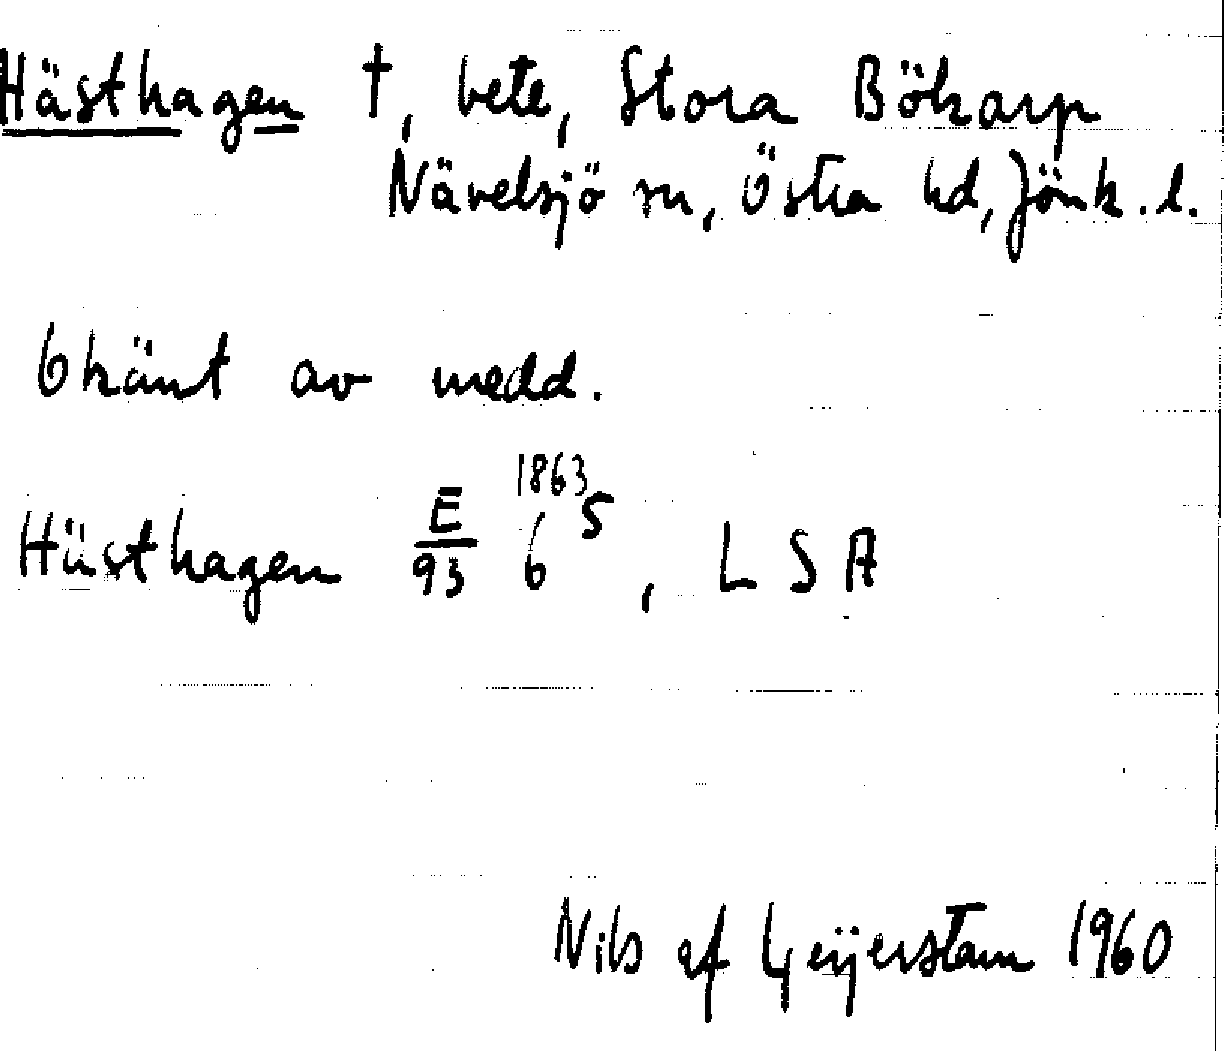 Hästhagen †, bete, Stora Bökarp
Nävelsjö sn, Östra hd, Jönk. l.
Okänt av medd.
Hästhagen E/93 6 1863 S, LSA
Nils af Geijerstam 1960